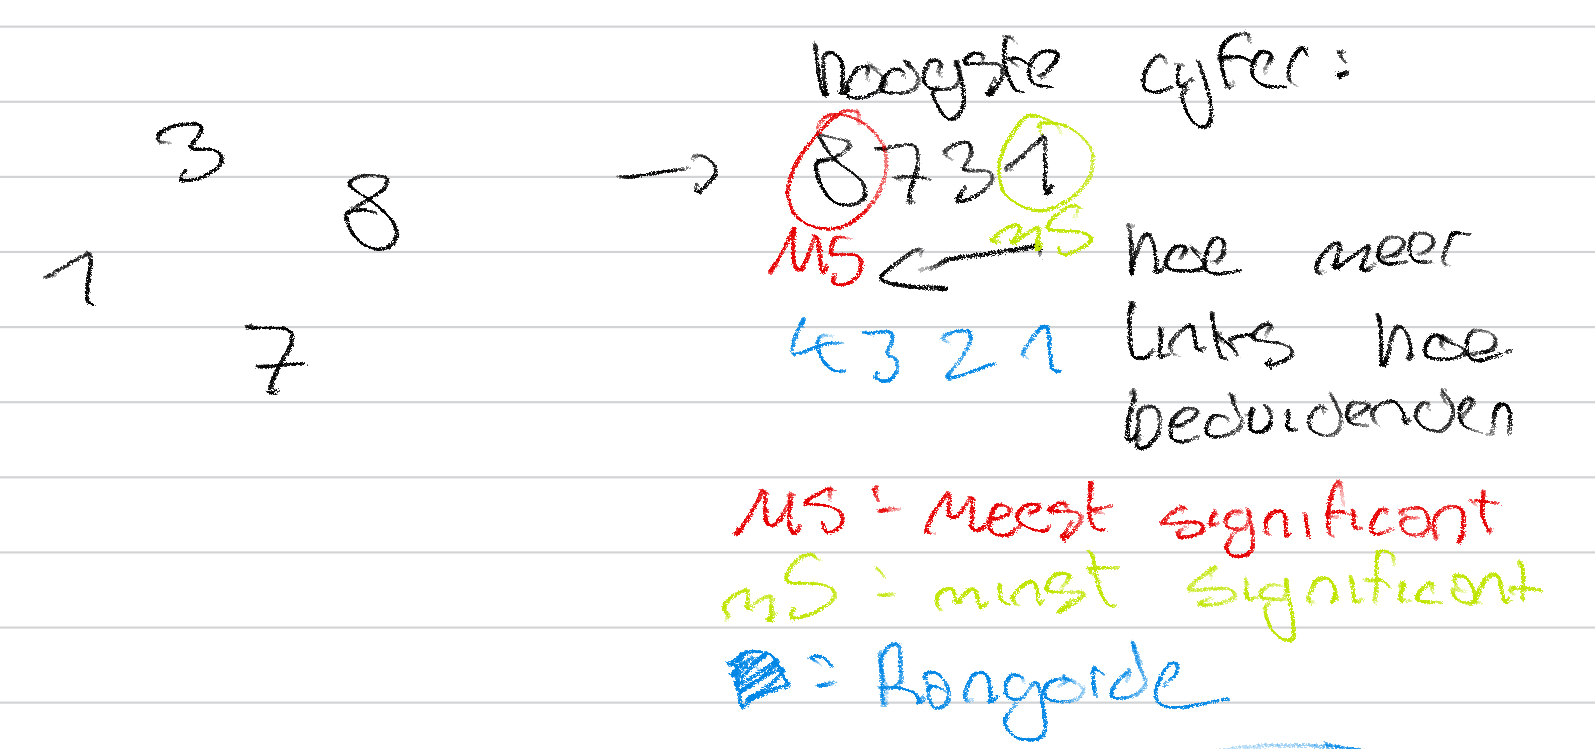 hoogste cyfer:
3
8
→ 8731
1
MS ← mS hoe meer
7
4 3 2 1 links hoe
beduidenden
MS = Meest significant
mS = minst significant
= Rangorde